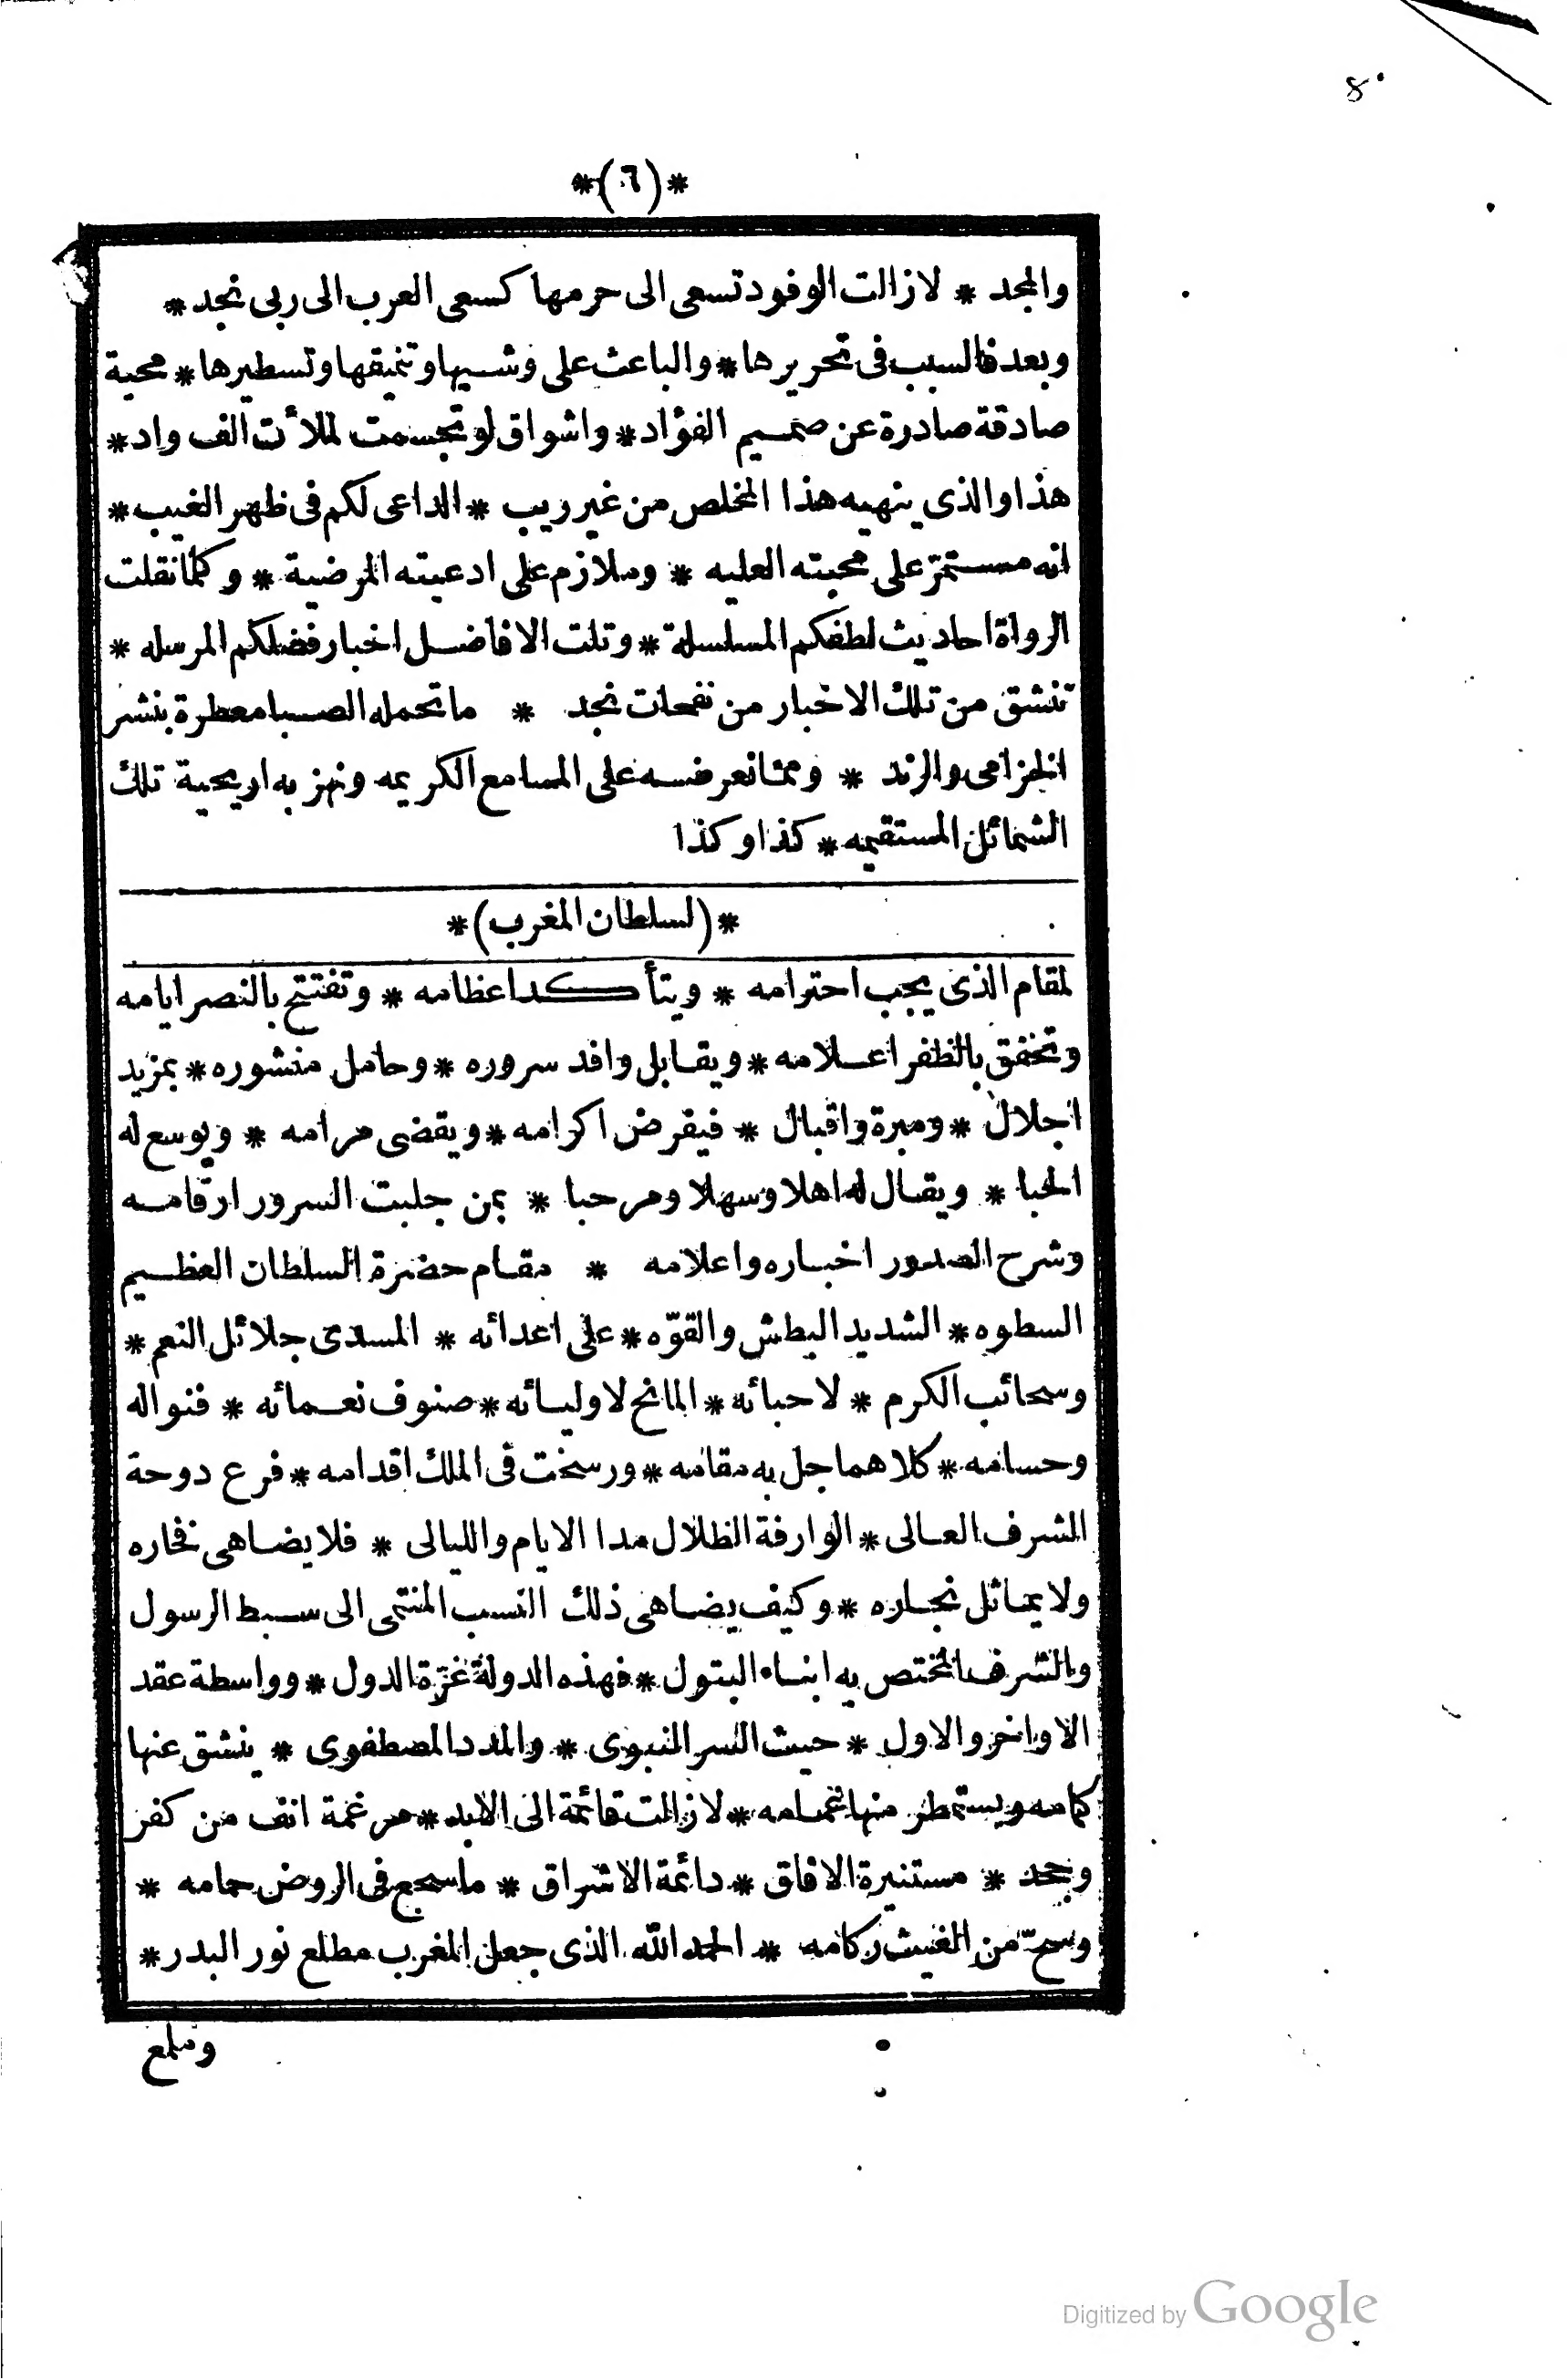 8٠
*(٦)*
والمجد * لازالت الوفود تسعى الى حرمها كسعى العرب الى ربى نجد *
وبعد فالسبب فى تحريرها * والباعث على وشيها وتنميقها وتسطيرها * محبة
صادقة صادرة عن صميم الفؤاد * واشواق لو تجسمت لملأت الف واد *
هذا والذى ينهيه هذا المخلص من غير ريب * الداعى لكم فى ظهر الغيب *
انه مستمرّ على محبته العليه * وملازم على ادعيته المرضية * وكلما نقلت
الرواة احاديث لطفكم المسلسلة * وتلت الافاضل اخبار فضلكم المرسله *
تنشق من تلك الاخبار من نفحات نجد * ما تحمله الصبا معطرة بنشر
الخزامى والرند * ومما نعرضه على المسامع الكريمه ونهز به اريحية تلك
الشمائل المستقيمه * كذا وكذا
*(لسلطان المغرب)*
لمقام الذى يجب احترامه * ويتأكد اعظامه * وتفتتح بالنصر ايامه
وتخفق بالظفر اعلامه * ويقابل وافد سروره * وحامل منشوره * بمزيد
اجلال * ومبرة واقبال * فيفرض اكرامه * ويقضى مرامه * ويوسع له
الحبا * ويقال له اهلا وسهلا ومرحبا * بمن جلبت السرور ارقامه
وشرح الصدور اخباره واعلامه * مقام حضرة السلطان العظيم
السطوه * الشديد البطش والقوّه * على اعدائه * المسدى جلائل النعم *
وسحائب الكرم * لاحبائه * المانح لاوليائه * صنوف نعمائه * فنواله
وحسامه * كلاهما جل به مقامه * ورسخت فى الملك اقدامه * فرع دوحة
الشرف العالى * الوارفة الظلال مدا الايام والليالى * فلا يضاهى فخاره
ولا يماثل نجاره * وكيف يضاهى ذلك النسب المنتمى الى سبط الرسول
والشرف المختص به ابناء البتول * فهذه الدولة غرّة الدول * وواسطة عقد
الاواخر والاول * حيث السر النبوى * والمدد المصطفوى * ينشق عنها
كمامه ويستمطر منها غمامه * لازالت قائمة الى الابد * مرغمة انف من كفر
وجحد * مستنيرة الافاق * دائمة الاشراق * ما سجع فى الروض حمامه *
وسحّ من الغيث ركامه * الحمد الله الذى جعل المغرب مطلع نور البدر *
ومطلع
Digitized by Google